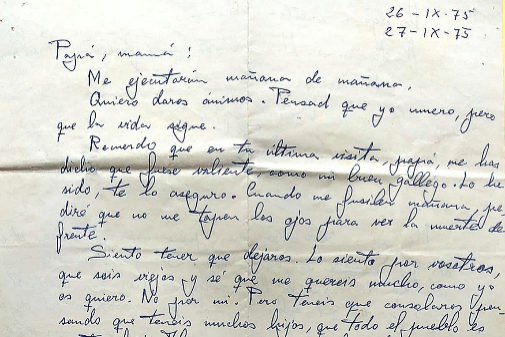 26-IX-75
27-IX-75
Papá, mamá:
Me ejecutarán mañana de mañana.
Quiero daros ánimos. Pensad que yo muero, pero
que la vida sigue.
Recuerdo que en tu última visita, papá, me has
dicho que fuese valiente, como un buen gallego. Lo he
sido, te lo aseguro. Cuando me fusilen mañana pe-
diré que no me tapen los ojos para ver la muerte de
frente.
Siento tener que dejaros. Lo siento por vosotros,
que sois viejos y sé que me quereis mucho, como yo
os quiero. No por mí. Pero teneis que consolaros pen-
sando que teneis muchos hijos, que todo el pueblo es